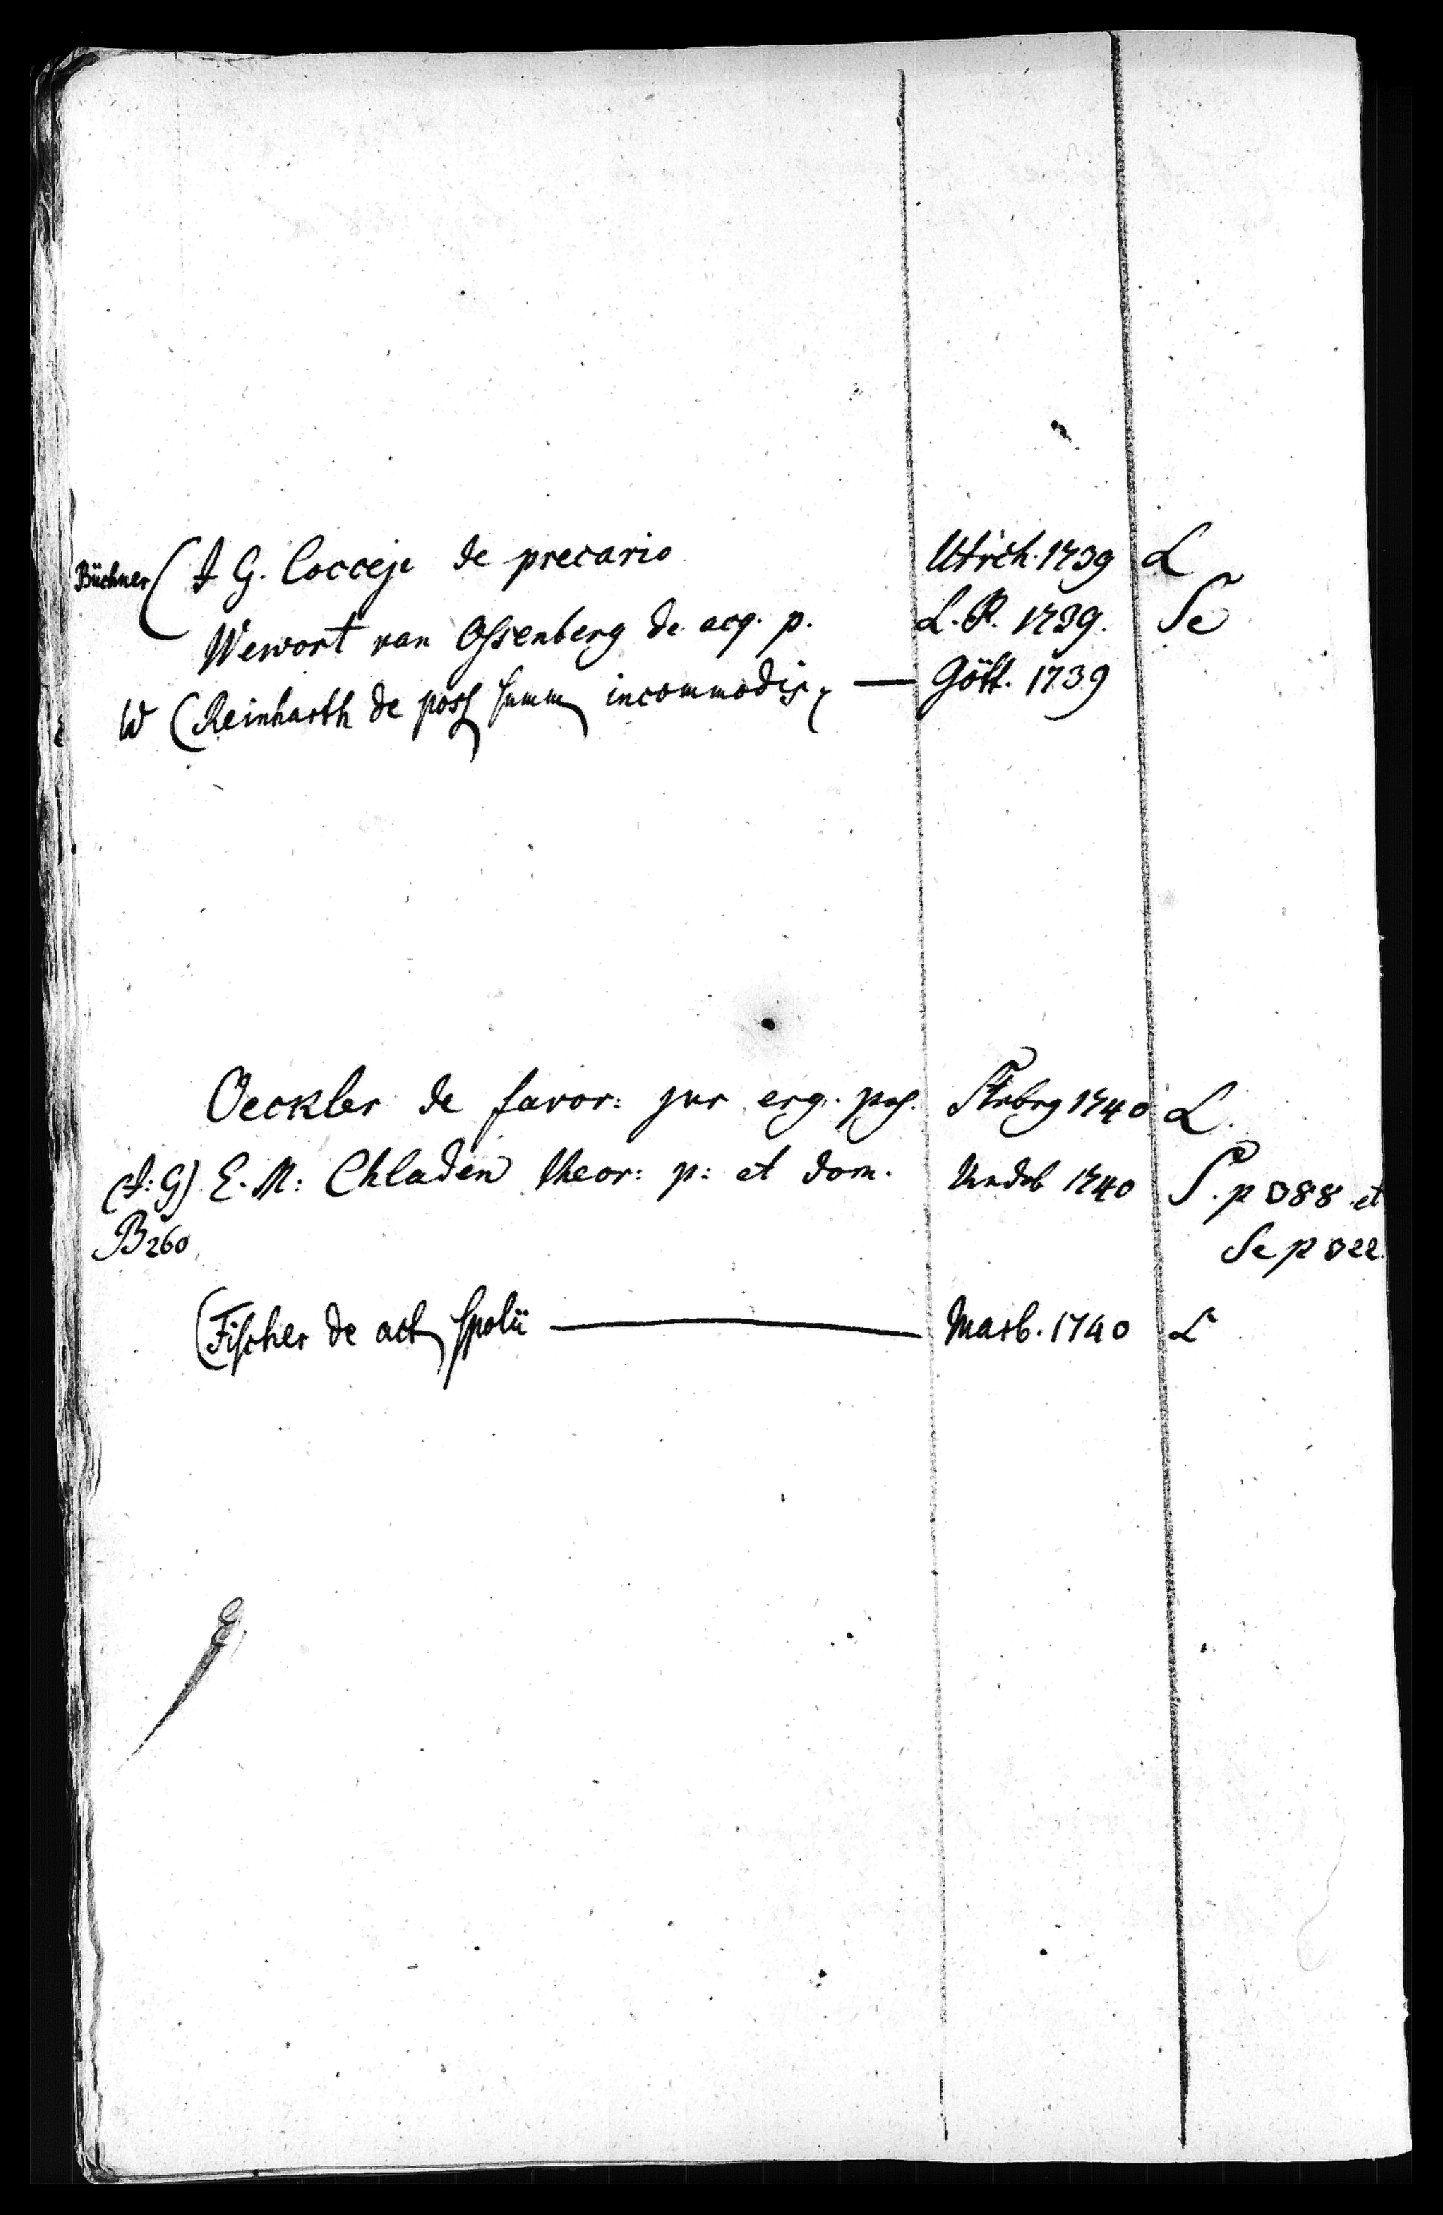 Büchner ( J G. Cocceji de precario Utrch. 1739 L
Wewort van Ossenberg de acq. p. L. B. 1739. Se
W ( Reinharth de poss summ incommodis — Gött. 1739
Oeckler de favor: jur erg. poss. Strbrg 1740 L.
(J: G) E. M: Chladen theor: p: et dom. Vindob 1740 S. p 388 et
B 260 Se p 322
( Fischer de act spolii — Marb. 1740 L